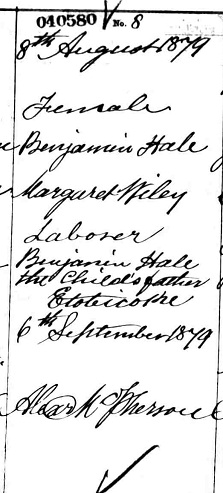 040580 No. 8
8th August 1879
Female
Benjamin Hale
Margaret Wiley
Laborer
Benjamin Hale
the Child's father
Etobicoke
6th September 1879